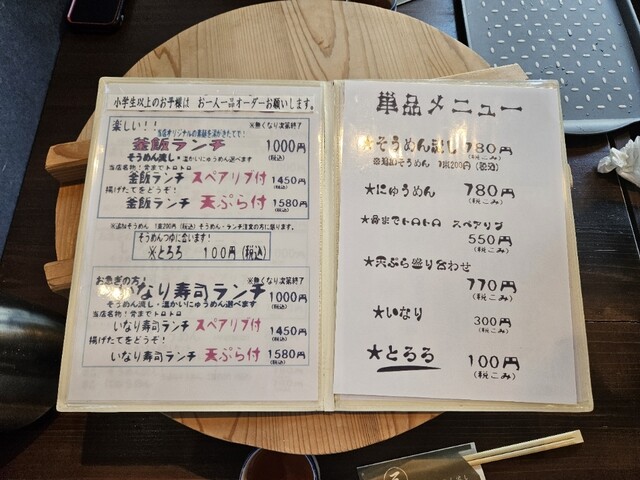 小学生以上のお子様は お一人一品オーダーお願いします。
楽しい!! ※無くなり次第終了
当店オリジナルの素麺を沸かきたてで!
釜飯ランチ 1000円
そうめん流し・温かいにゅうめん選べます (税込)
当店名物!骨までトロトロ
釜飯ランチ スペアリブ付 1450円
(税込)
揚げたてをどうぞ!
釜飯ランチ 天ぷら付 1580円
(税込)
※追加そうめん 1皿200円(税込) そうめん・ランチ注文の方に限ります。
そうめんつゆに合います!
※とろろ 100円(税込)
お急ぎの方! ※無くなり次第終了
いなり寿司ランチ 1000円
そうめん流し・温かいにゅうめん選べます (税込)
当店名物!骨までトロトロ
いなり寿司ランチ スペアリブ付 1450円
(税込)
揚げたてをどうぞ!
いなり寿司ランチ 天ぷら付 1580円
(税込)
単品メニュー
★そうめん流し 780円
(税こみ)
◎追加そうめん 1皿200円(税込)
★にゅうめん 780円
(税こみ)
★骨までトロトロ スペアリブ
550円
(税こみ)
★天ぷら盛り合わせ
770円
(税こみ)
★いなり 300円
(税こみ)
★とろろ 100円
(税こみ)